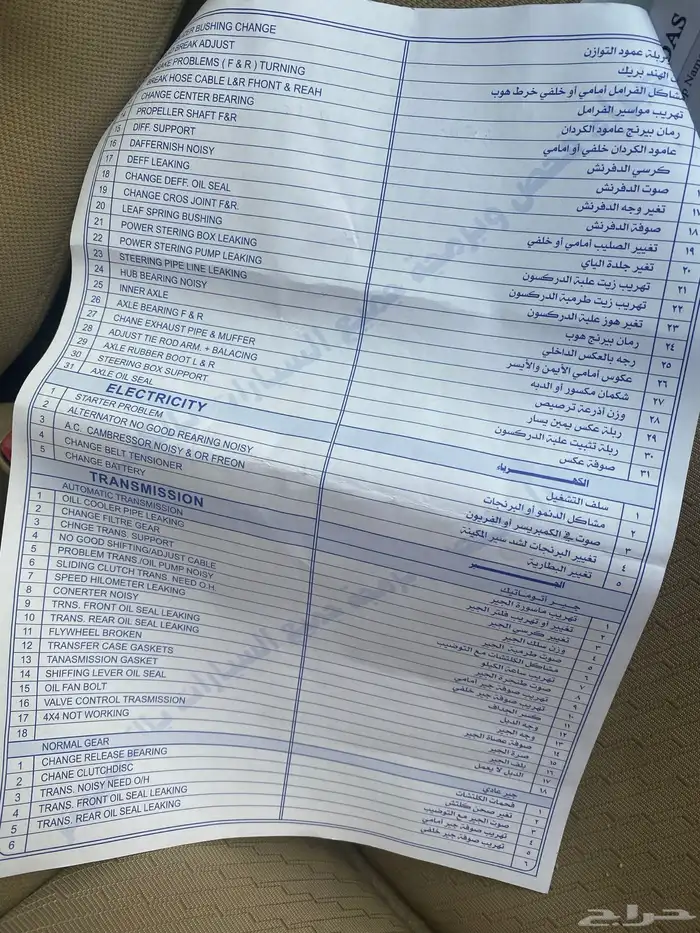 BUSHING CHANGE ربلة عمود التوازن
BREAK ADJUST الهند بريك
PROBLEMS ( F & R ) TURNING مشاكل الفرامل أمامي أو خلفي خرط هوب
BREAK HOSE CABLE L&R FHONT & REAH تهريب مواسير الفرامل
CHANGE CENTER BEARING رمان بيرنج عامود الكردان
PROPELLER SHAFT F&R عامود الكردان خلفي أو امامي
15 DIFF. SUPPORT كرسي الدفرنش
16 DAFFERNISH NOISY صوت الدفرنش
17 DEFF LEAKING تغير وجه الدفرنش ١٧
18 CHANGE DEFF. OIL SEAL صوفة الدفرنش ١٨
19 CHANGE CROS JOINT F&R. تغيير الصليب أمامي أو خلفي ١٩
20 LEAF SPRING BUSHING تغير جلدة الياي ٢٠
21 POWER STERING BOX LEAKING تهريب زيت علبة الدركسون ٢١
22 POWER STERING PUMP LEAKING تهريب زيت طرمبة الدركسون ٢٢
23 STEERING PIPE LINE LEAKING تغير هوز علبة الدركسون ٢٣
24 HUB BEARING NOISY رمان بيرنج هوب ٢٤
25 INNER AXLE رجه بالعكس الداخلي ٢٥
26 AXLE BEARING F & R عكوس أمامي الأيمن والأيسر ٢٦
27 CHANE EXHAUST PIPE & MUFFER شكمان مكسور أو الدبه ٢٧
28 ADJUST TIE ROD ARM. + BALACING وزن أذرعة ترصيص ٢٨
29 AXLE RUBBER BOOT L & R ربلة عكس يمين يسار ٢٩
30 STEERING BOX SUPPORT ربلة تثبيت علبة الدركسون ٣٠
31 AXLE OIL SEAL صوفة عكس ٣١
ELECTRICITY الكهرباء
1 STARTER PROBLEM سلف التشغيل ١
2 ALTERNATOR NO GOOD REARING NOISY مشاكل الدنمو أو البرنجات ٢
3 A.C. CAMBRESSOR NOISY & OR FREON صوت في الكمبريسر أو الفريون ٣
4 CHANGE BELT TENSIONER تغيير البرنجات لشد سير المكينة ٤
5 CHANGE BATTERY تغيير البطارية ٥
TRANSMISSION الجير
AUTOMATIC TRANSMISSION جير أتوماتيك
1 OILL COOLER PIPE LEAKING تهريب ماسورة الجير ١
2 CHANGE FILTRE GEAR تغيير أو تهريب فلتر الجير ٢
3 CHNGE TRANS. SUPPORT تغيير كرسي الجير ٣
4 NO GOOD SHIFTING/ADJUST CABLE وزن سلك الجير ٤
5 PROBLEM TRANS /OIL PUMP NOISY صوت طرمبة الجير
6 SLIDING CLUTCH TRANS. NEED O.H. مشاكل الكلتشات مع التوضيب
7 SPEED HILOMETER LEAKING تهريب ساعة الكيلو
8 CONERTER NOISY صوت طنجرة الجير
9 TRNS. FRONT OIL SEAL LEAKING تهريب صوفة جير أمامي
10 TRANS. REAR OIL SEAL LEAKING تهريب صوفة جير خلفي
11 FLYWHEEL BROKEN كسر الحذاف
12 TRANSFER CASE GASKETS وجه الدبل
13 TANASMISSION GASKET وجه الجير
14 SHIFFING LEVER OIL SEAL صوفة عصاة الجير
15 OIL FAN BOLT صرة الجير
16 VALVE CONTROL TRASMISSION بلف الجير
17 4X4 NOT WORKING الدبل لا يعمل ١٧
18 ١٨
NORMAL GEAR جير عادي
1 CHANGE RELEASE BEARING فحمات الكلتشات ١
2 CHANE CLUTCHDISC تغير صحن كلتش ٢
3 TRANS. NOISY NEED O/H صوت الجير مع التوضيب ٣
4 TRANS. FRONT OIL SEAL LEAKING تهريب صوفة جير أمامي ٤
5 TRANS. REAR OIL SEAL LEAKING تهريب صوفة جير خلفي ٥
6 ٦
حراج